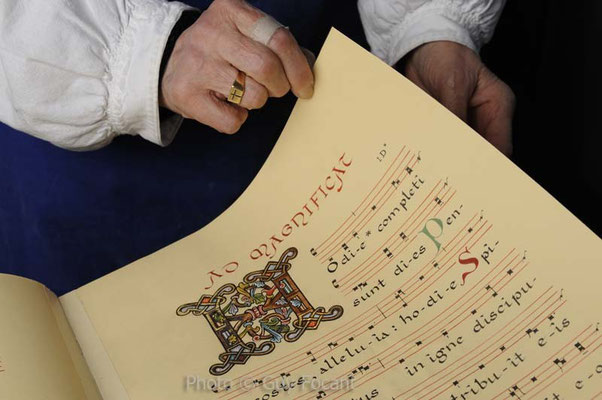 AD MAGNIFICAT
I D*
Odi-e* completi
sunt di-es pen-
allelu-ia: ho-di-e Spi-
in igne discipu-
tribu-it e-is
Photo © Guy Focant